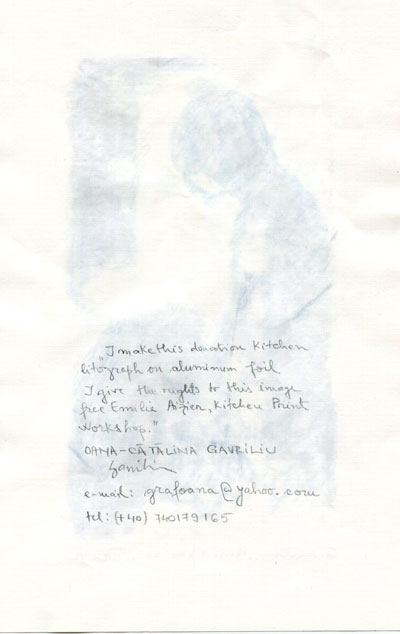 „I make this donation Kitchen
litograph on aluminum foil
I give the rights to this image
free Emilie Aizier, Kitchen Print
Workshop."
OANA-CĂTĂLINA GAVRILIU
e-mail: grafoana@yahoo.com
tel: (+40) 740179165